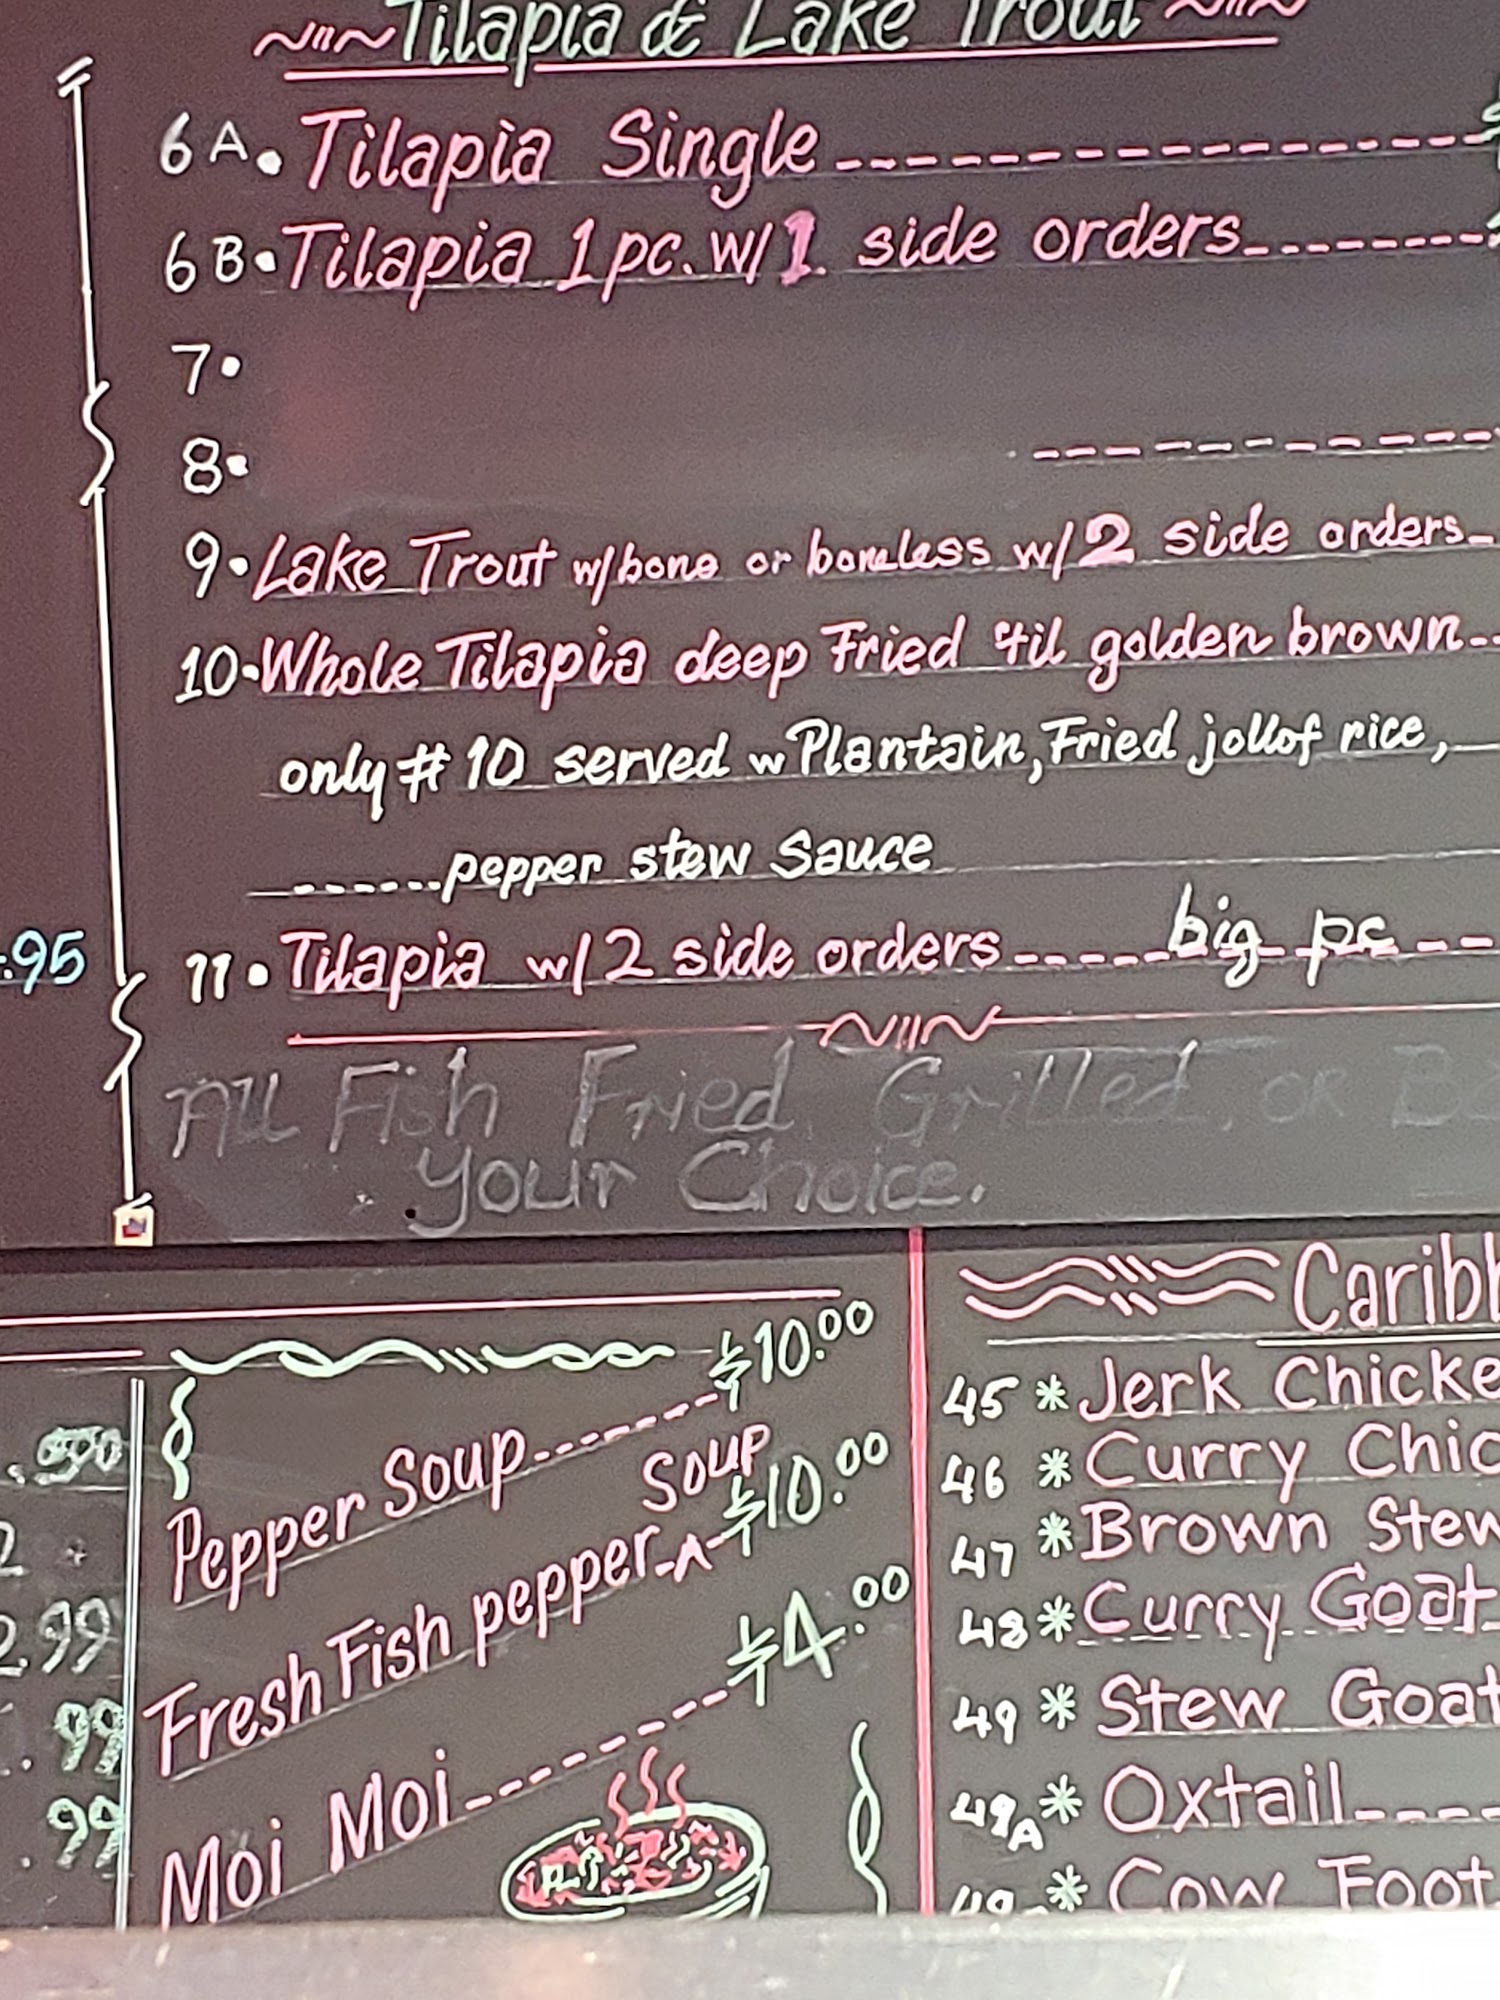 Tilapia & Lake Trout
6A. Tilapia Single
6B. Tilapia 1pc. w/1. side orders
7.
8.
9. Lake Trout w/bone or boneless w/2 side orders
10. Whole Tilapia deep Fried 'til golden brown
only # 10 served w Plantain, Fried jollof rice,
pepper stew Sauce
.95
11. Tilapia w/2 side orders big pc
All Fish Fried, Grilled, or
your Choice.
$10.00
Pepper Soup
Soup
Fresh Fish pepper A $10.00
Moi Moi $4.00
2.99
.99
.99
45 * Jerk
46 * Curry
47 * Brown Stew
48 * Curry Goat
49 * Stew Goat
49A * Oxtail
* Cow Foot